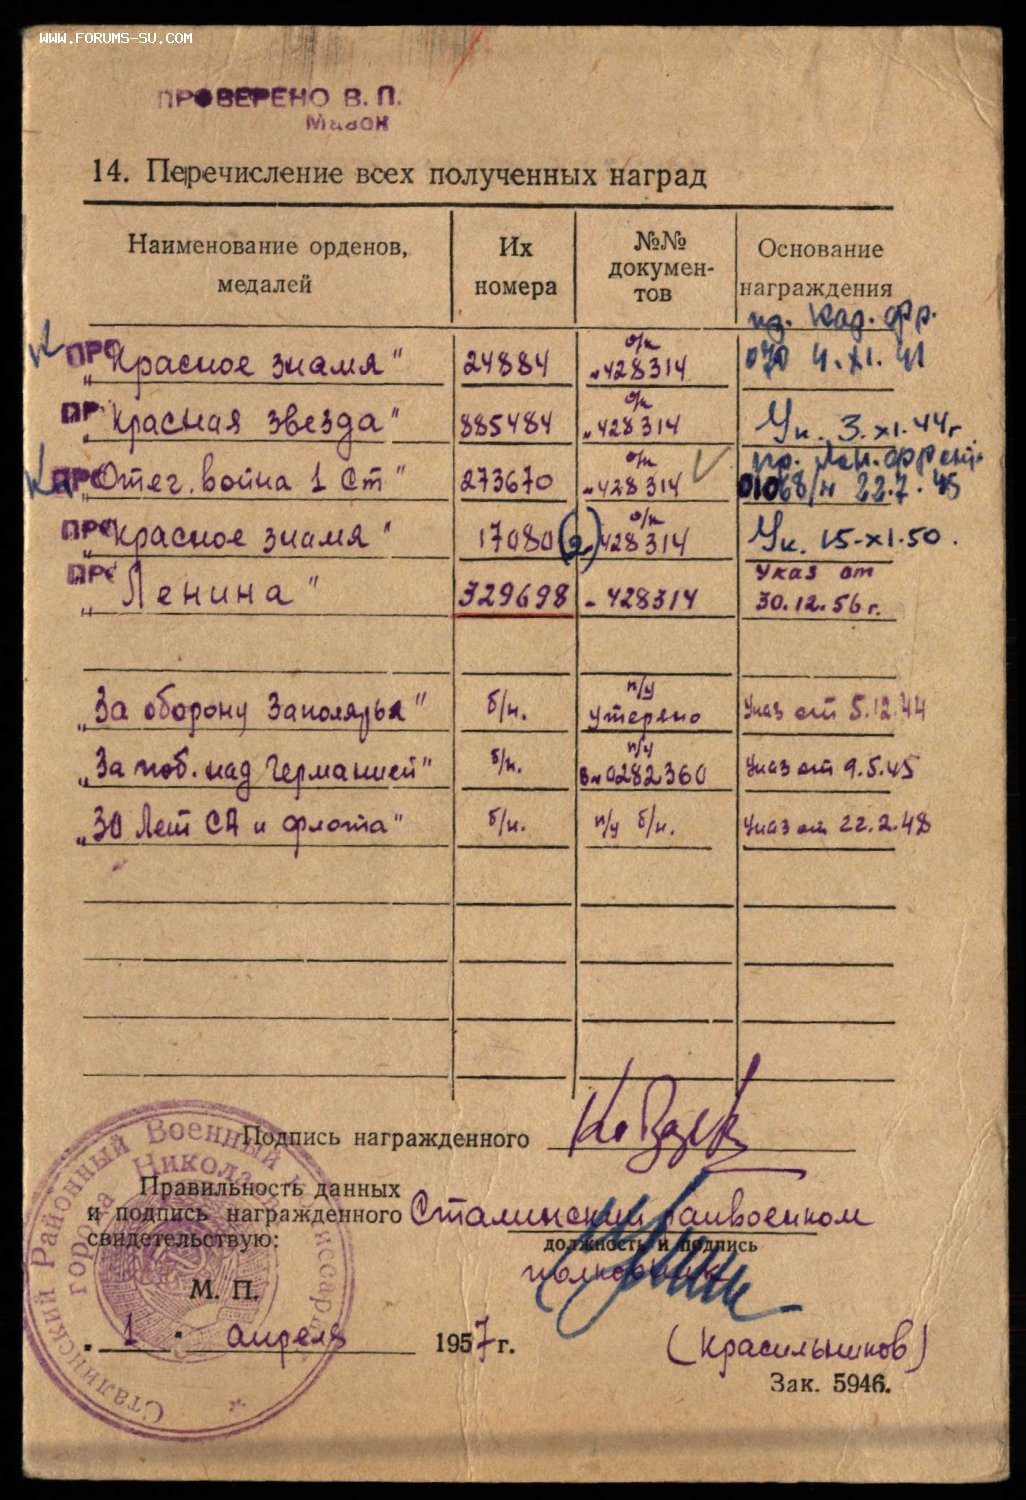 WWW.FORUMS-SU.COM
ПРОВЕРЕНО В. П.
Мазон
14. Перечисление всех полученных наград
Наименование орденов, медалей
Их номера
№№ документов
Основание награждения
пр. Кар. фр.
ПРО „Красное знамя" 24884 о/к „428314 070 4.XI.41
ПР „Красная звезда" 885484 о/к „428314 Ук. 3.XI.44г.
пр. Лен. фронт.
ПРО „Отеч. война 1 ст" 273670 о/к „428314 01068/н 22.7.45
ПРО „Красное знамя" 17080 (2) о/к 428314 Ук. 15.XI.50.
ПРО „Ленина" 329698 - 428314 Указ от 30.12.56г.
„За оборону Заполярья" б/н. п/у утеряно Указ от 5.12.44
„За поб. над Германией" б/н. п/у 0282360 Указ от 9.5.45
„30 Лет СА и флота" б/н. п/у б/н. Указ от 22.2.48
Подпись награжденного
Правильность данных
и подпись награжденного Сталинский райвоенком
свидетельствую: должность и подпись
полковник
М. П.
„1" апреля 1957 г. (Красильников)
Зак. 5946.
Сталинский Районный Военный Комиссариат
города Николаева